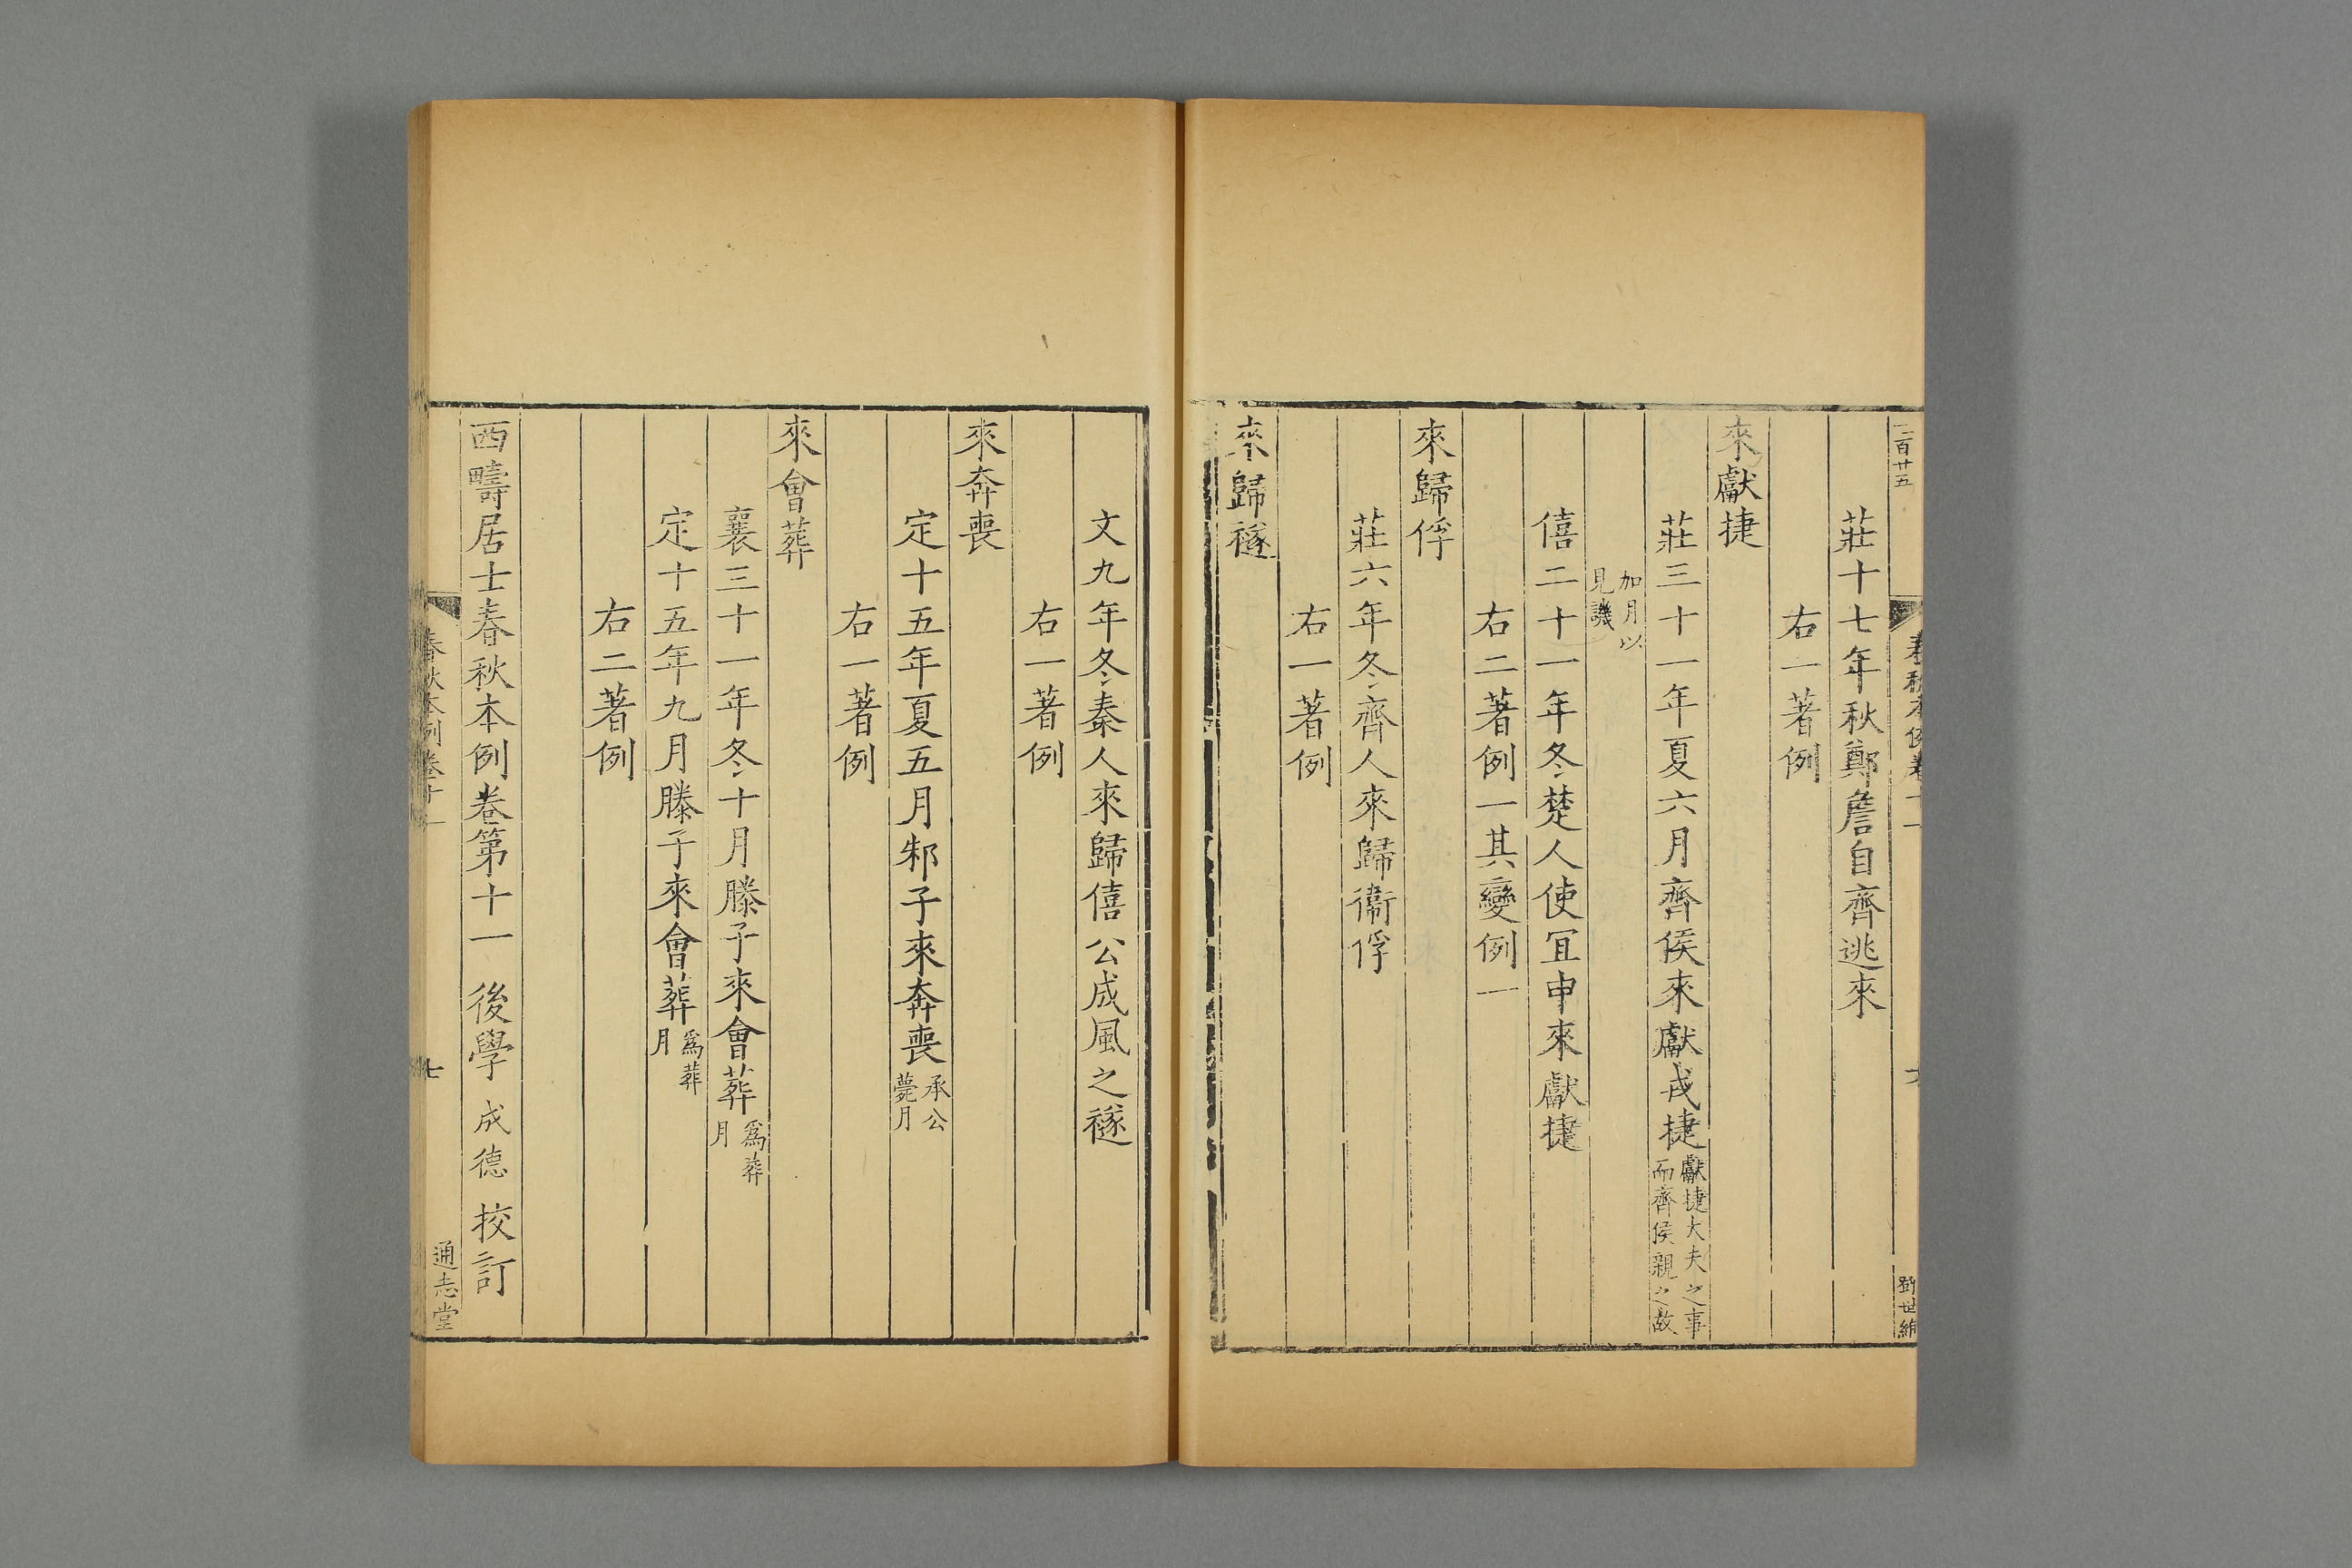 二百廿五
莊十七年秋鄭詹自齊逃來
右一著例
來獻捷
莊三十一年夏六月齊侯來獻戎捷獻捷大夫之事而齊侯親之故
加月以見譏
僖二十一年冬楚人使宜申來獻捷
右二著例一其變例一
來歸俘
莊六年冬齊人來歸衞俘
右一著例
來歸襚
文九年冬秦人來歸僖公成風之襚
右一著例
來奔喪
定十五年夏五月邾子來奔喪承公薨月
右一著例
來會葬
襄三十一年冬十月滕子來會葬爲葬月
定十五年九月滕子來會葬爲葬月
右二著例
西疇居士春秋本例卷第十一 後學 成德 挍訂
春秋本例卷十一 七 通志堂